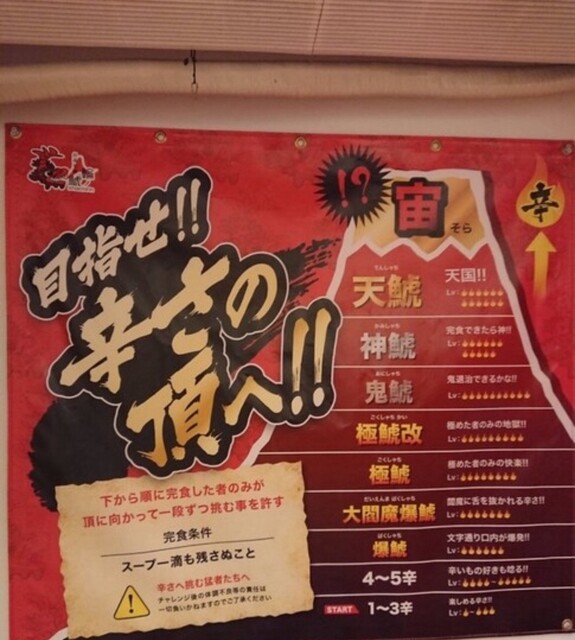 目指せ!!
辛さの
頂へ!!
!?
宙
そら
辛
てんしゃち
天鯱
天国!!
Lv:
かみしゃち
神鯱
完食できたら神!!
Lv:
おにしゃち
鬼鯱
鬼退治できるかな!!
Lv:
ごくしゃち かい
極鯱改
極めた者のみの地獄!!
Lv:
ごくしゃち
極鯱
極めた者のみの快楽!!
Lv:
だいえんま ばくしゃち
大閻魔爆鯱
閻魔に舌を抜かれる辛さ!!
Lv:
ばくしゃち
爆鯱
文字通り口内が爆発!!
Lv:
4〜5辛
辛いもの好きも唸る!!
Lv: 〜
START
1〜3辛
楽しめる辛さ!!
Lv: 〜
下から順に完食した者のみが
頂に向かって一段ずつ挑む事を許す
完食条件
スープ一滴も残さぬこと
辛さへ挑む猛者たちへ
チャレンジ後の体調不良等の責任は
一切負いかねますのでご了承ください